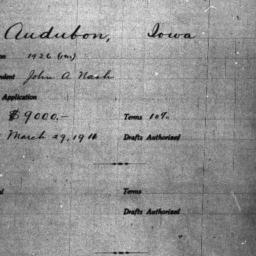 Audubon, Iowa
1926 (est)
John A Nash
Application
$9000.- Terms 10%
March 29, 1911 Drafts Authorized
Terms
Drafts Authorized